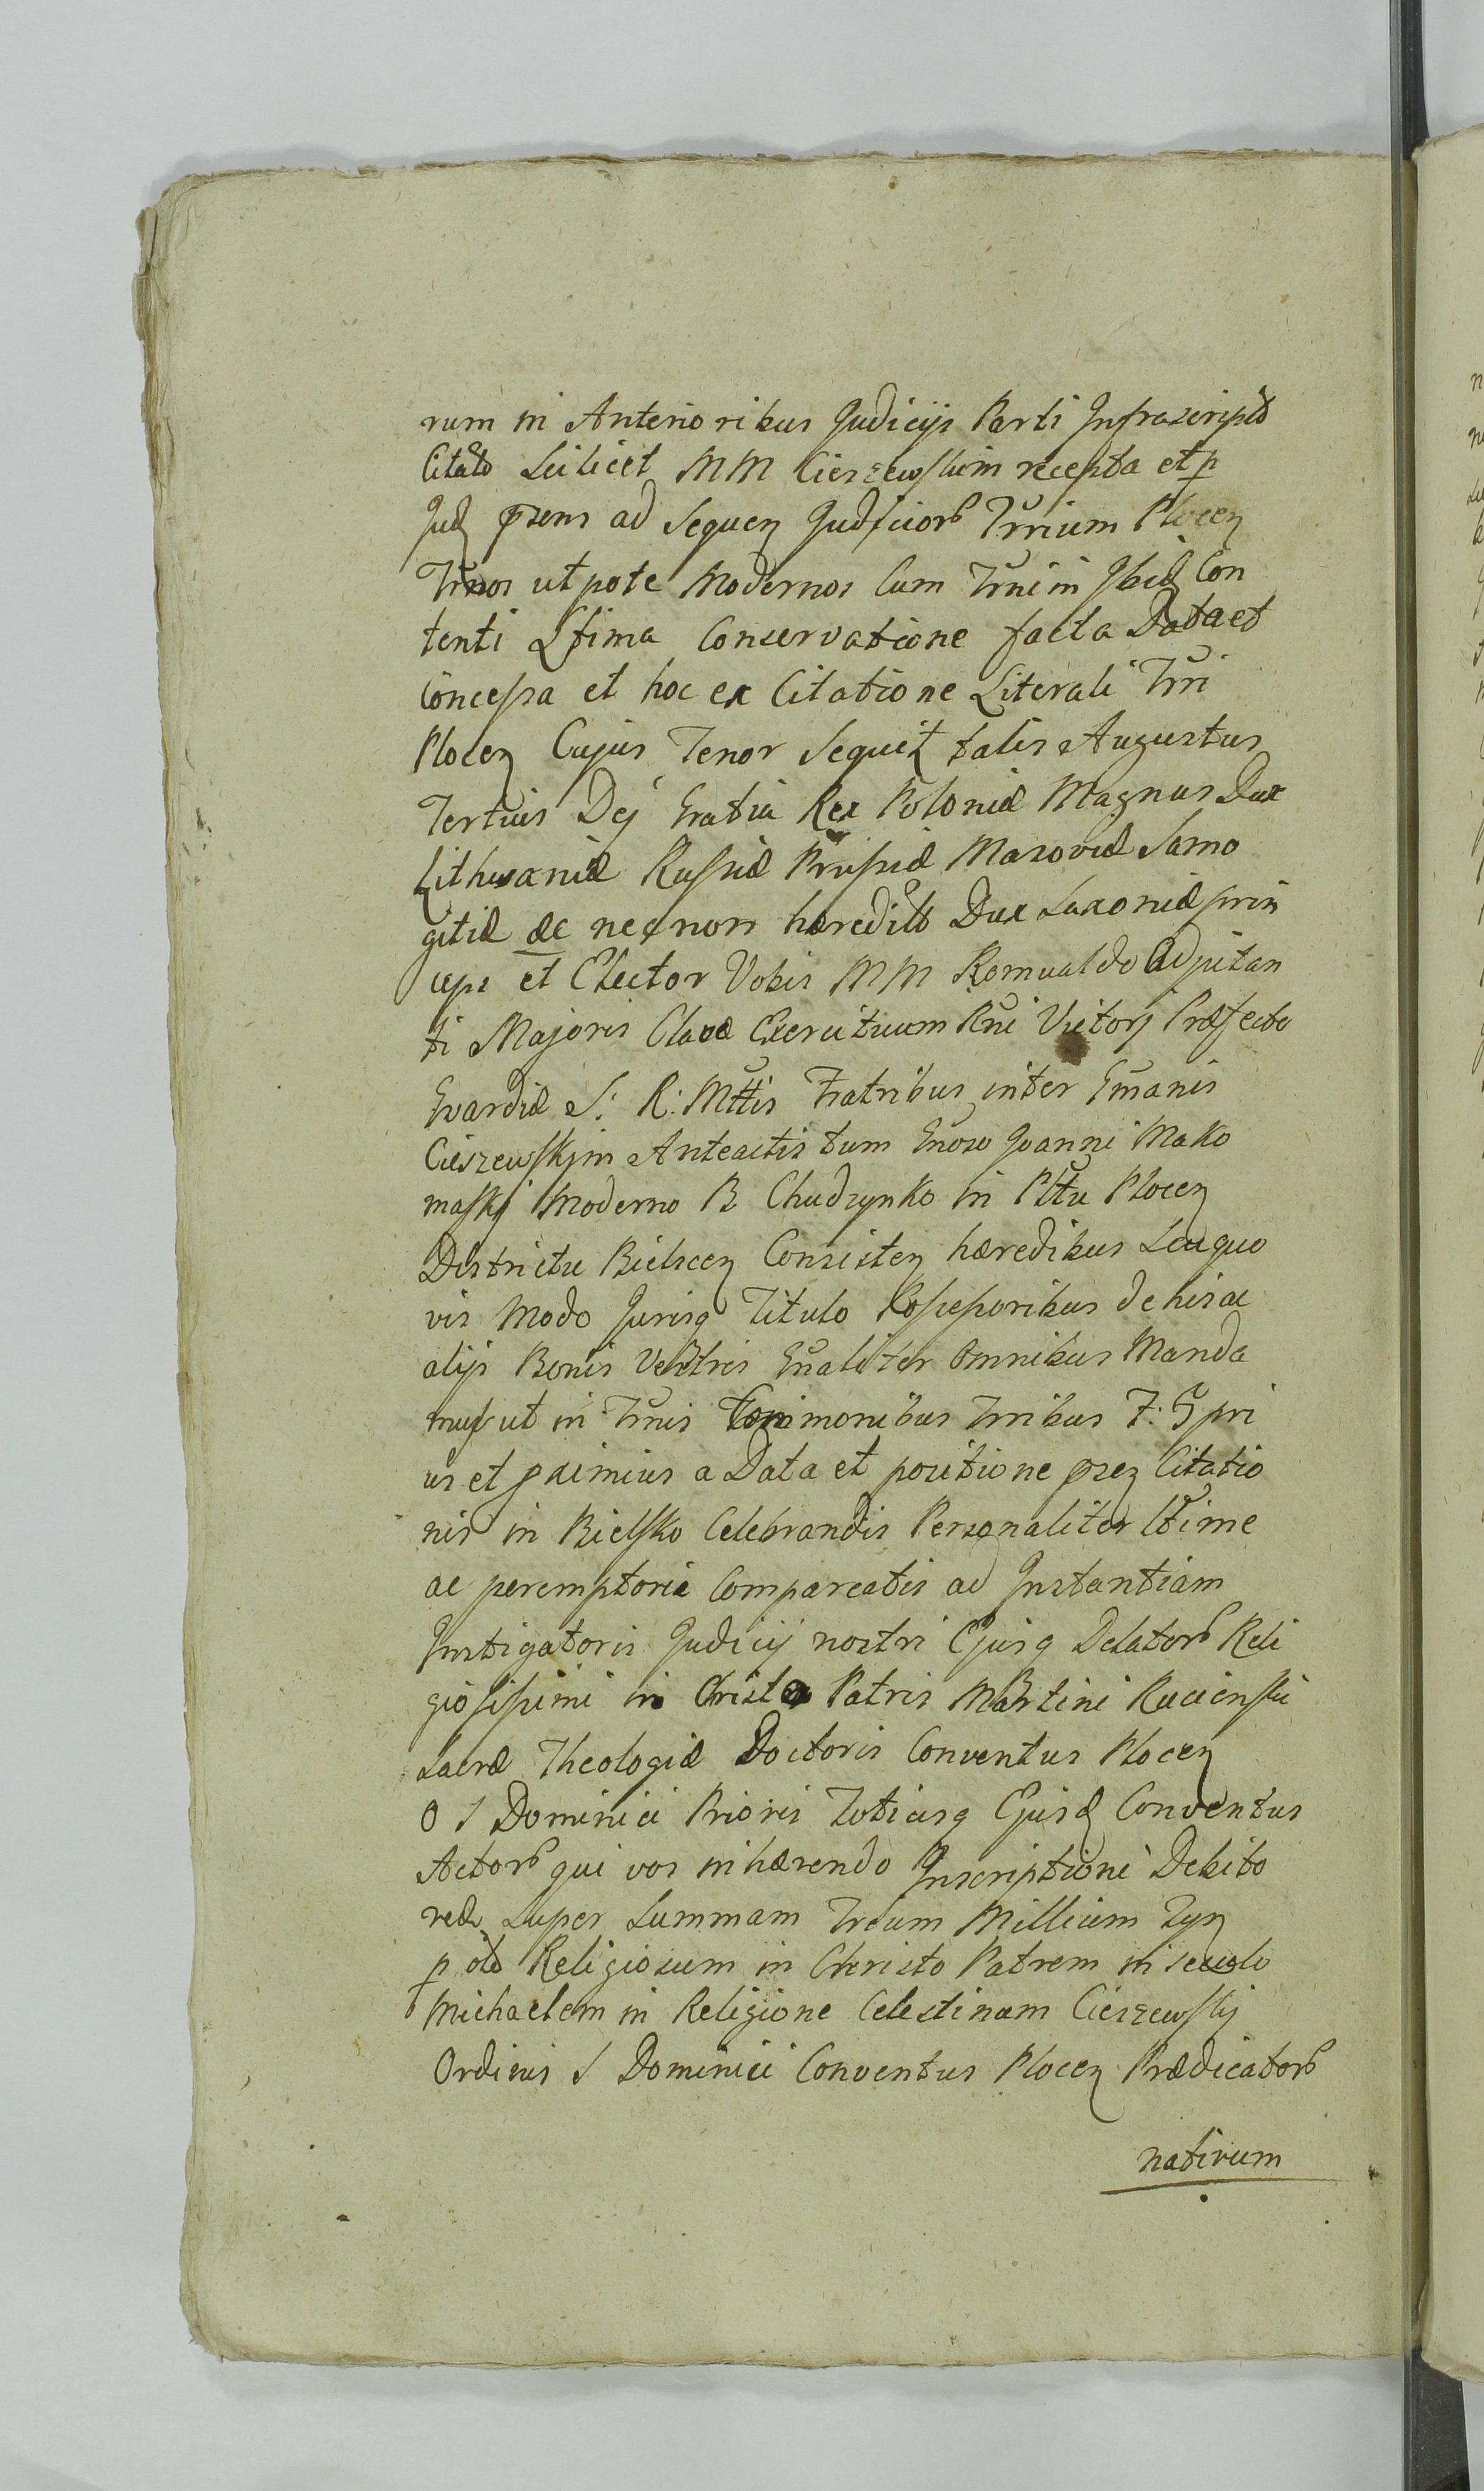 rum in Anterioribus Judicijs Parti Infrascripto
Citato Scilicet MM Cieszewskim recepta et p
Jud psens ad Sequen Judiciorb Trrium Plocen
Trnos utpote Modernos Cum Trnim Ibid Con
tenti Ltima Conservatione facta Data et
Concessa et hoc ex Citatione Literali Trri
Plocen Cujus Tenor Sequit talis Augustus
Tertius Dej Gratia Rex Poloniæ Magnus Dux
Lithuaniæ Russiæ Prussiæ Masoviæ Samo
gitiæ &c necnon hæredits Dux Saxoniæ prin
ceps et Elector Vobis MM Romualdo Adjutan
ti Majoris Clavæ Exercituum Rni Victorj Præfecto
Gvardiæ S: R: Mttis Fratribus inter Gmanis
Cieszewskjm Anteactis tum Gnoso Joanni Mako
maskj Moderno B Chudzynko in Pltu Plocen
Districtu Bielscen Consisten hæredibus Seu quo
vis Modo Jurisq Titulo Possessoribus de his ac
alijs Bonis Vestris Gnaliter Omnibus Manda
mus ut in Trnis Conimonibus Trribus F: S pri
us et pximius a Data et positione psen Citatio
nis in Bielsko Celebrandis Personaliter Ltime
ac peremptorie Compareatis ad Instantiam
Instigatoris Judicij nostri Ejusq Delatorb Reli
giosissimi in Christo Patris Martini Rucienski
Sacræ Theologiæ Doctoris Conventus Plocen
O S Dominici Prioris Totiusq Ejusd Conventus
Actorb qui vos inhærendo Inscriptioni Debito
reæ Super Summam Trium Millium Tyn
p olo Religiosum in Christo Patrem in seculo
Michaelem in Religione Celestinum Cieszewskj
Ordinis S Dominici Conventus Plocen Prædicatorb
nativum